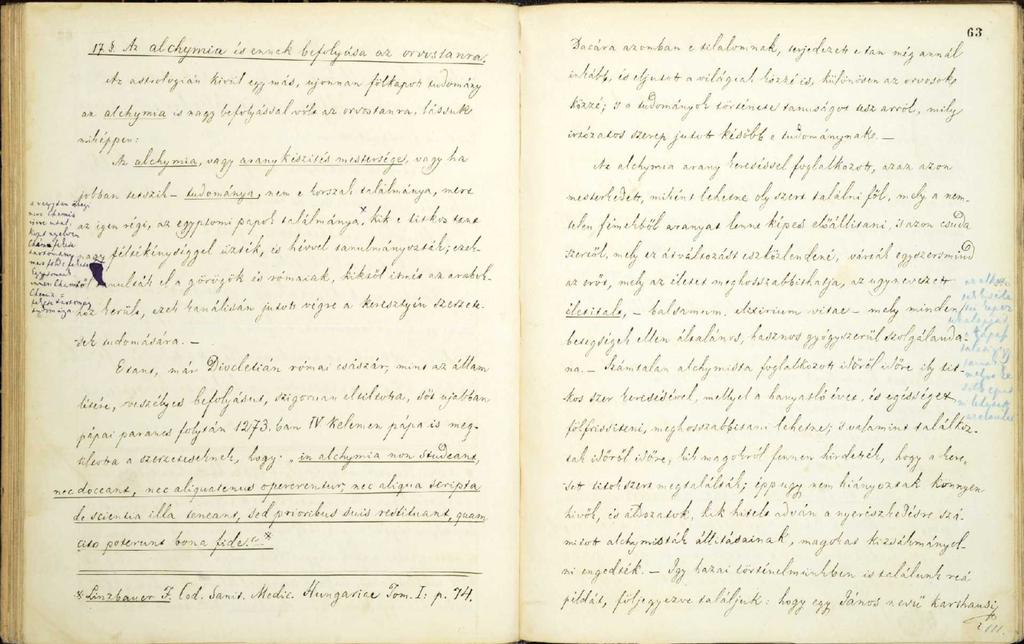 17. §. Az alchymia és ennek befolyása az orvostanra.
Az astrologián kivül egy más, ujonnan fölkapott tudomány
az alchymia is nagy befolyással volt az orvostanra, lássuk
miképpen:
Az alchymia, vagy arany készités mestersége, vagy ha
jobban tetszik – tudománya, nem e korszak találmánya, mert
az igen régi, az egyptomi papok találmánya, kik e titkos tant
nagy féltékenységgel űzték, és hévvel tanulmányozták; ezek-
től tanulták el a görögök és rómaiak, kiktől ismét az arabok-
hoz került, ezek kanálisán jutott végre a keresztyén szerzete-
sek tudomására. –
Ezant, már Diocletián római császár, mint az állam
létére, veszélyes befolyásut, szigoruan eltiltotta, sőt ujabban
pápai parancs folytán 1273.ban IV Kelemen pápa is meg-
tiltotta a szerzeteseknek, hogy: „in alchymia non studeant,
nec doceant, nec aliquatenus opererentur, nec aliqua scripta
de scientia illa teneant, sed prioribus suis restituant, quam
cito poterunt bona fide."
Linzbauer F. Cod. Sanit. Medic. Hungariae Tom. I: p. 74.
Chemia =
63
Dacára azonban e tilalomnak, terjedezett e tan még annál
inkább, és eljutott a világiak közzé is, különösen az orvosok
közzé; s a tudományok története tanuságot tesz arról, mily
irtózatos szerep jutott később e tudománynak. –
Az alchymia arany kereséssel foglalkozott, azaz azon
mesterkedett, miként lehetne oly szert találni föl, mely a nem-
telen fémekből aranyat lenne képes előállitani, s azon csuda
szertől, mely ez átváltozást eszközlendené, várták egyszersmind
az erőt, mely az életet meghosszabbithatja, az ugynevezett
életitalt, – balsamum, elixirium vitae – mely minden
betegségek ellen általános, hasznos gyógyszerül szolgálandna:
na. – Számtalan alchymista foglalkozott időről időre ily tit-
kos szer keresésével, mellyel a hanyatló évet, és egésséget
fölfrissiteni, meghosszabbitani lehetne; s valamint találkoz-
tak időről időre, kik magokról fennen hirdették, hogy a kere-
sett titokszert megtalálták; éppugy nem hiányoztak könnyen
hivők, és áldozatok, kik hitelt adván a nyerészkedésre szá-
mitott alchymisták állitásainak, magokat kizsákmányol-
ni engedték. – Igy hazai történelmünkben is találunk reá
példát, följegyezve találjuk: hogy egy János nevü karthausi